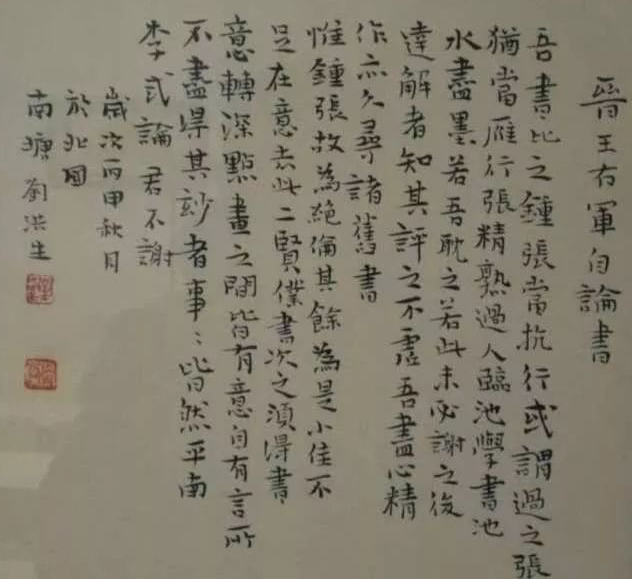 晉王右軍自論書
吾書比之鍾張當抗行或謂過之張
猶當雁行張精熟過人臨池學書池
水盡墨若吾耽之若此未必謝之後
達解者知其評之不虛吾盡心精
作亦久尋諸舊書
惟鍾張故為絕倫其餘為是小佳不
足在意去此二賢僕書次之須得書
意轉深點畫之間皆有意自有言所
不盡得其玅者事〻皆然平南
李式論君不謝
歲次丙申秋月
於北
南塘 劉洪生